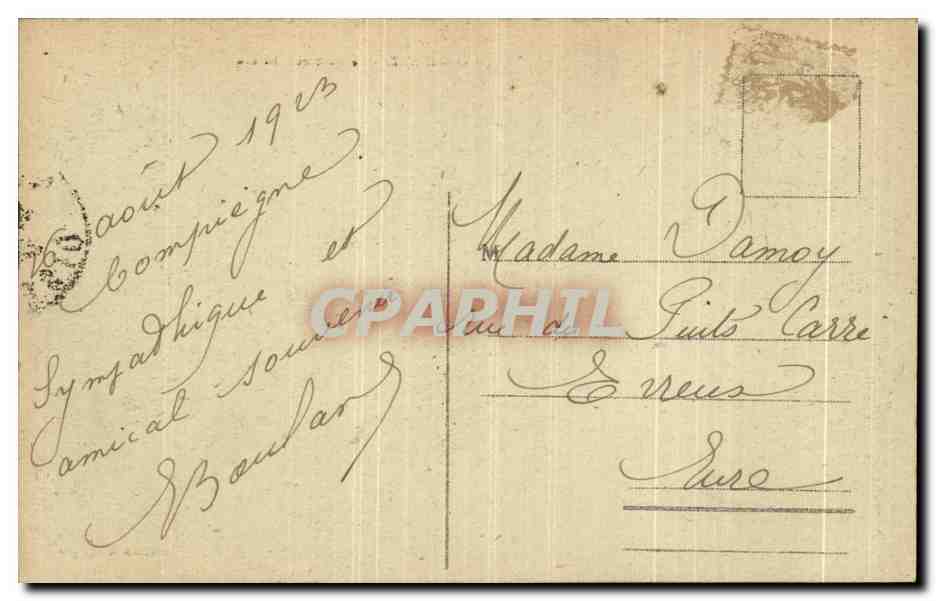 août 1923
Compiegne
Sympathique et
amical souvenir
Boulan
Madame Damoy
Rue du Puits Carré
Evreux
Eure
CPAPHIL